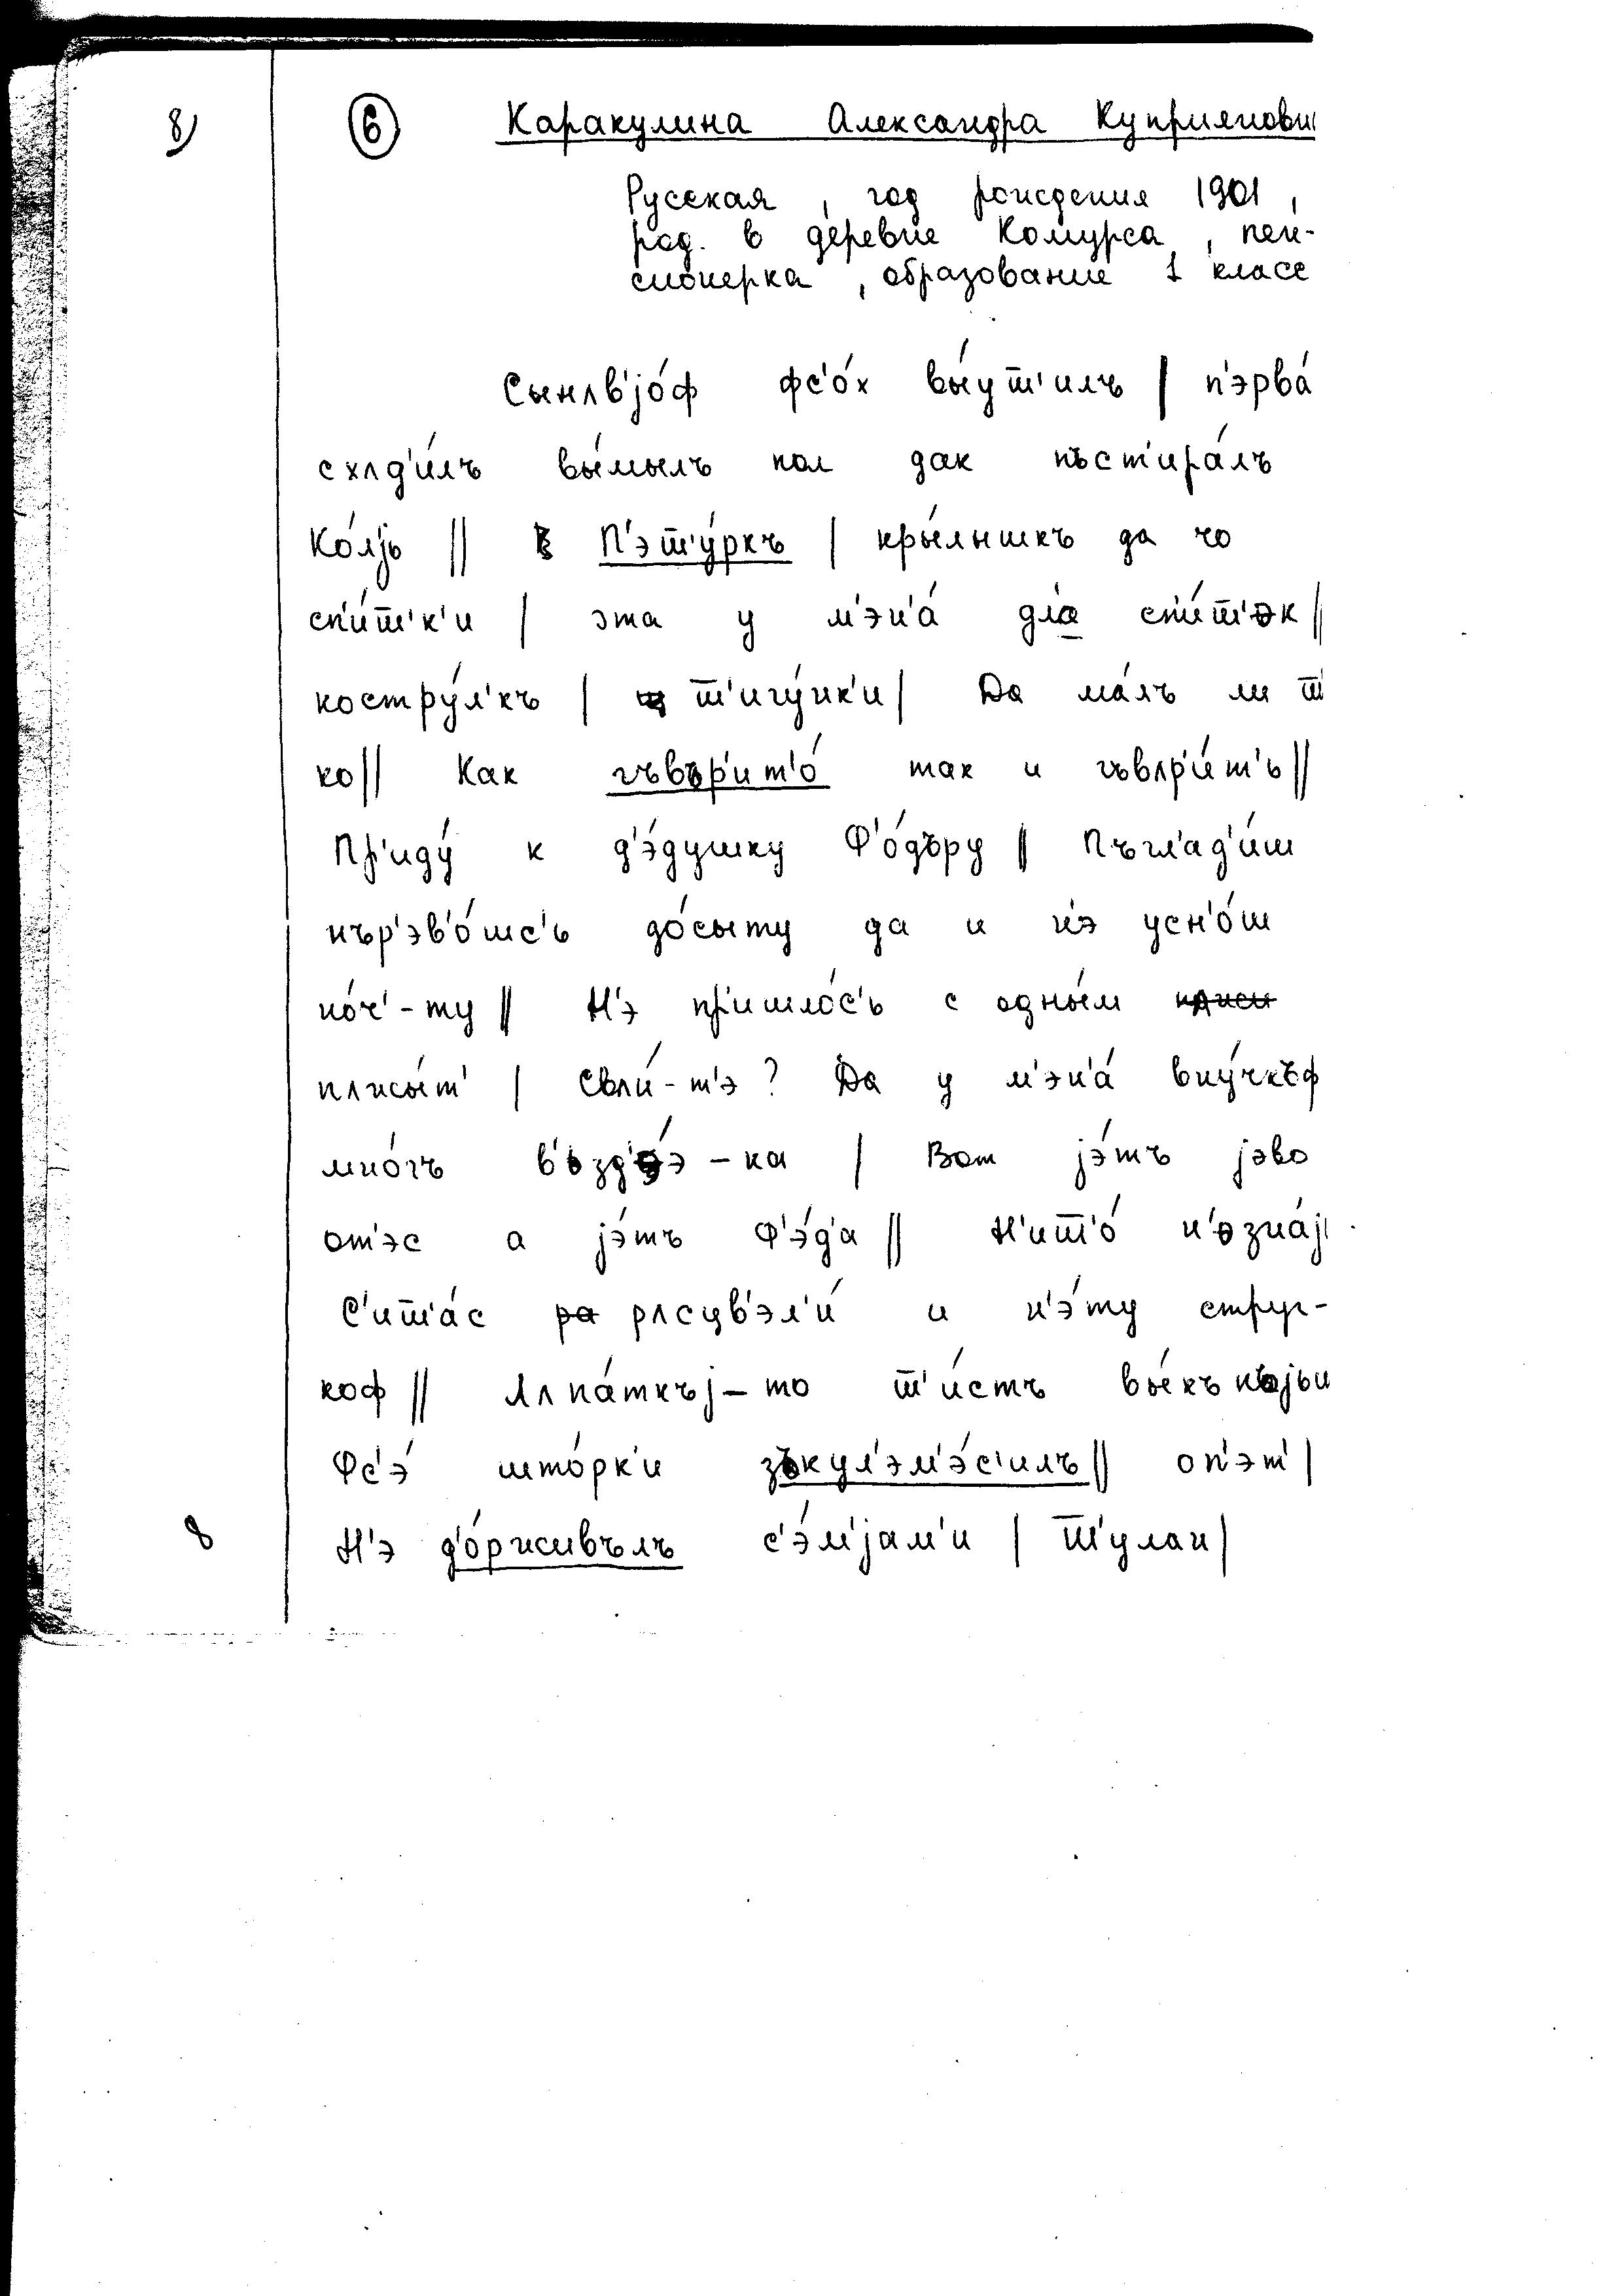 8)
6 Каракулина Александра Куприянови
Русская, год рождения 1901,
род. в деревне Комурса, пен-
сионерка, образование 1 класс
Сынʌв'jо́ф фс'о́х вы́ут'илъ | п'эрва́
схʌд'и́лъ вы́мылъ пол дак пъст'ира́лъ
Ко́л'jь || П'эт'у́ркъ | кры́лышкъ да чо
сп'и́т'к'и | эта у м'эн'а́ дл'а сп'и́т'эк ||
костру́л'къ | т'игу́нк'и | Да ма́лъ ли т'
ко || Как гъвър'ит'о́ так и гъвʌр'и́т'ь ||
Пр'иду́ к д'э́душку Ф'о́дъру || Пъгл'ад'и́ш
нър'эв'о́шс'ь до́сыту да и н'э усн'о́ш
но́ч'-ту || Н'э пр'ишло́с'ь с одны́м
пʌсы́т' | Свʌи́-т'э? Да у м'эн'а́ вну́чкъф
мно́гъ -ка | Вот jэ́тъ jэво
от'эс а jэ́тъ Ф'э́д'а || Н'ит'о́ н'эзна́j
С'ит'а́с рʌсцв'эл'и́ и н'э́ту струч-
коф || Лʌпа́ткъj-то т'и́стъ
Фс'э́ што́рк'и зъкул'эм'э́с'илъ || оп'эт' |
8 Н'э д'о́рживълъ с'э́м'jам'и | Т'улан |